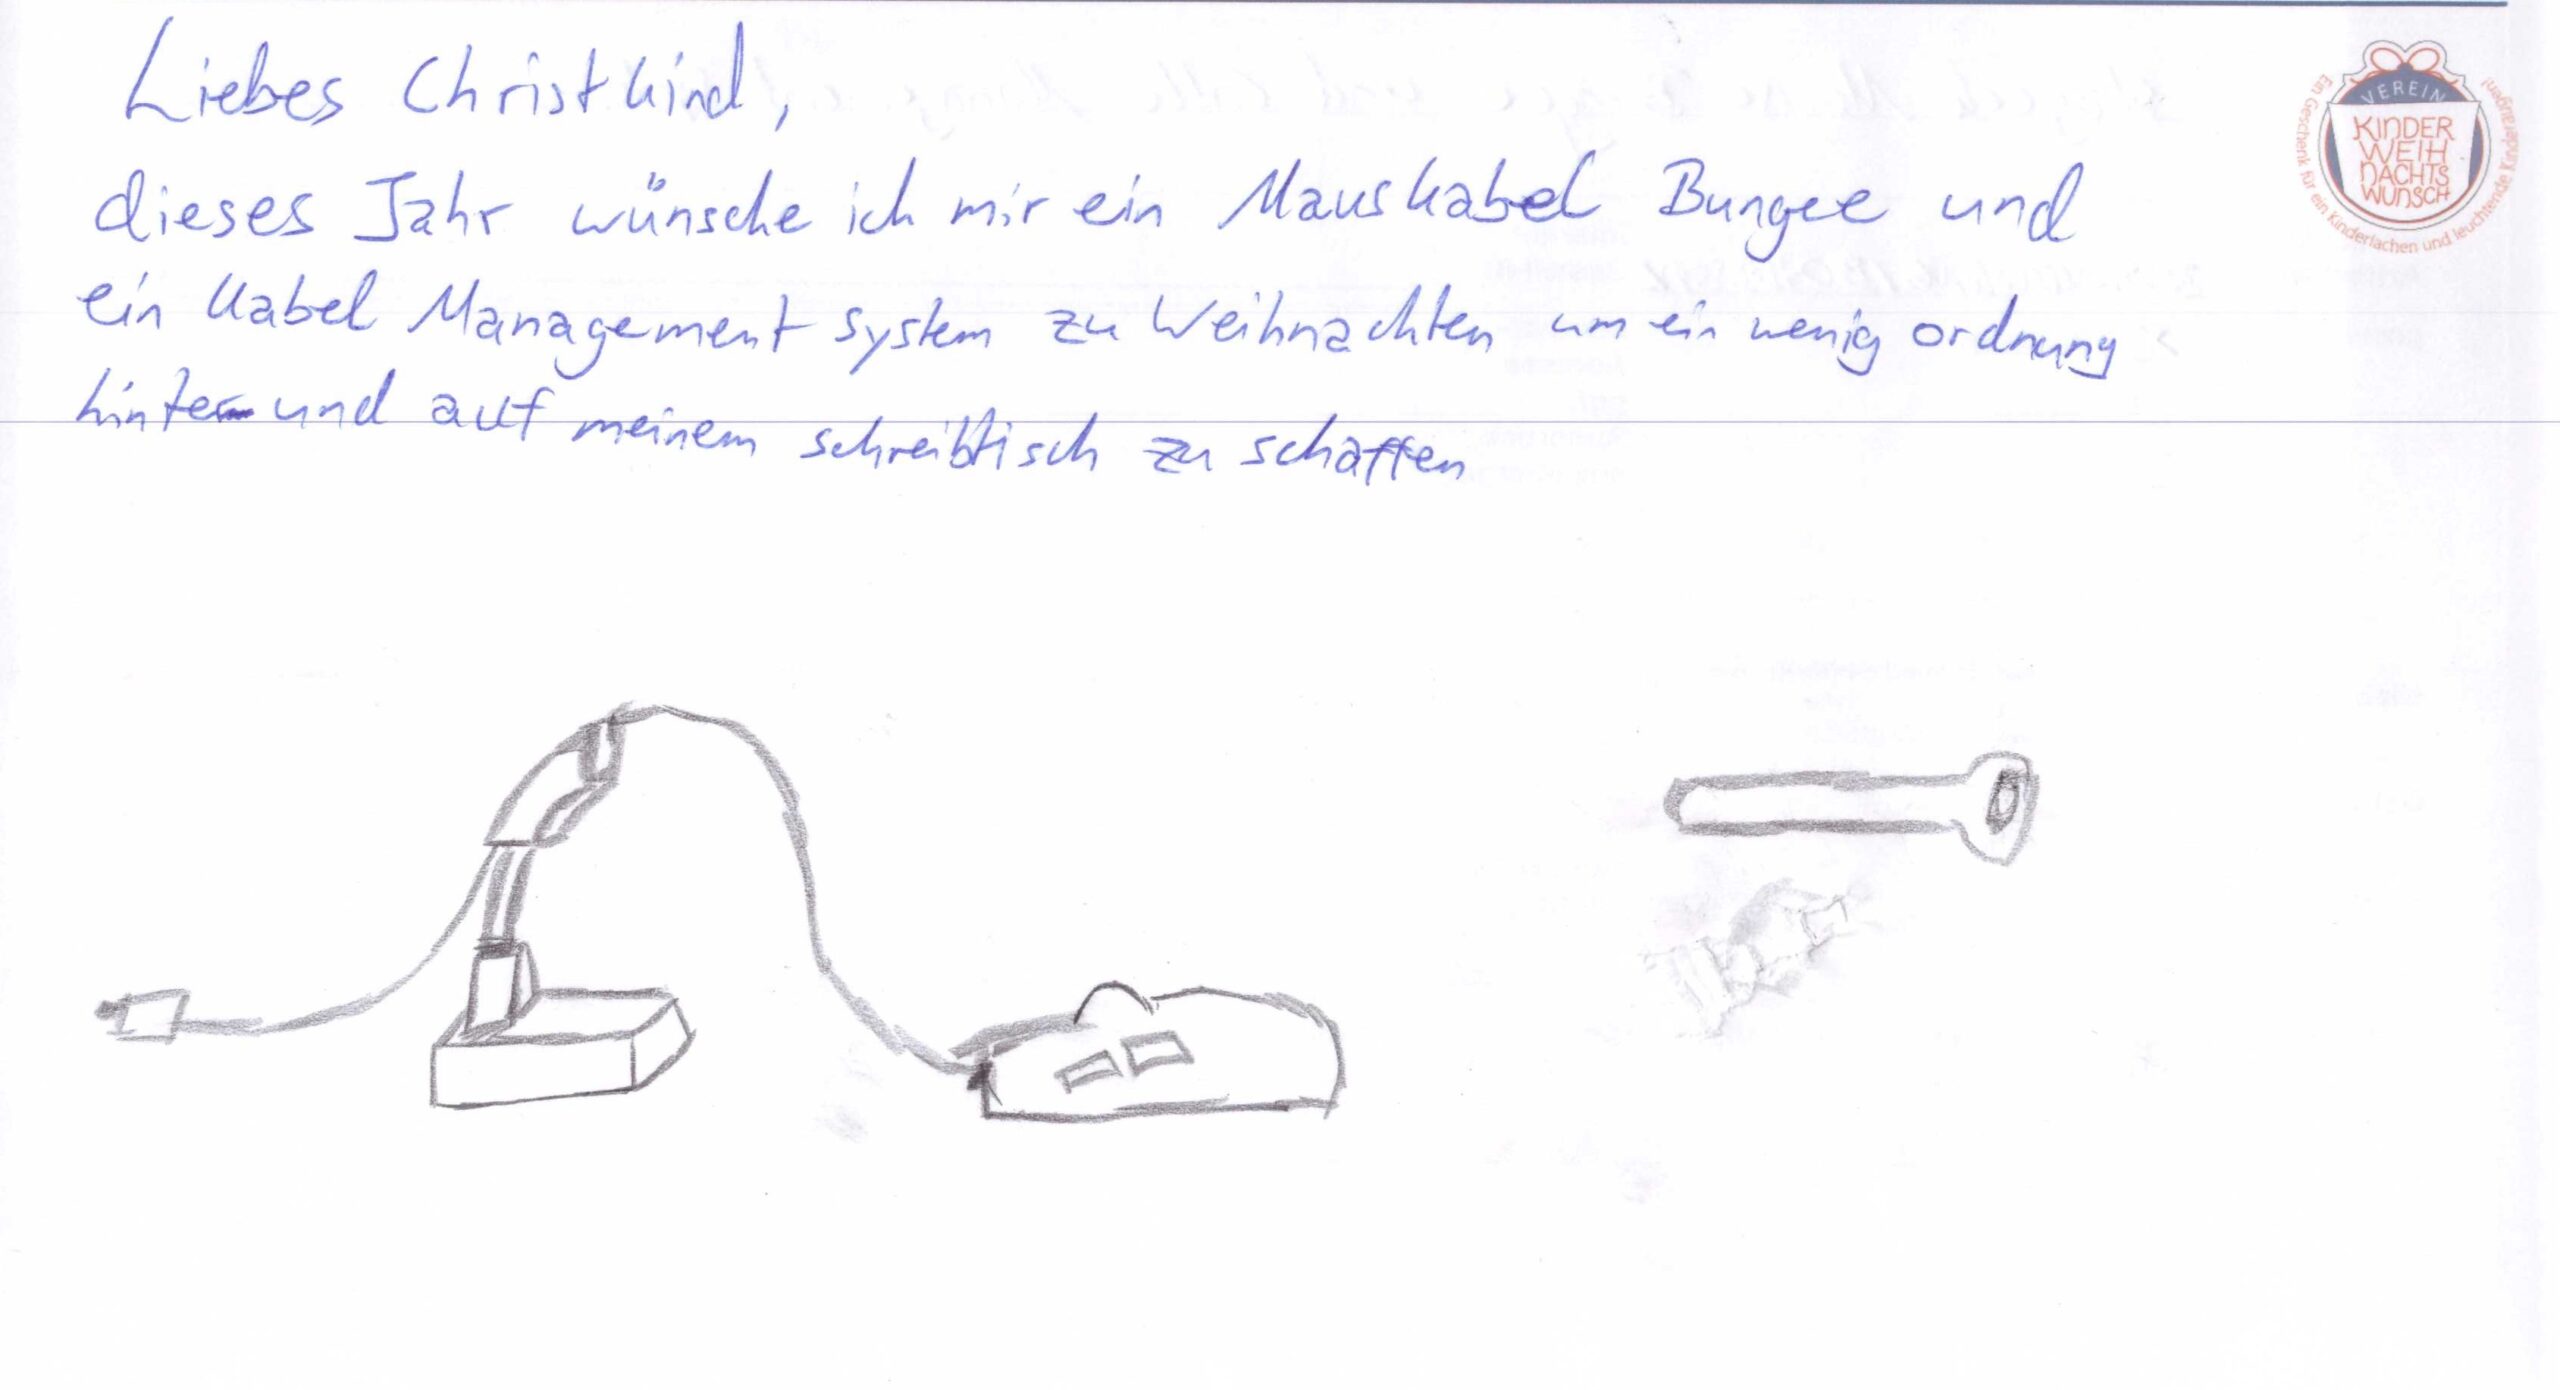 Liebes Christkind,
dieses Jahr wünsche ich mir ein Mauskabel Bungee und
ein Kabel Management system zu Weihnachten um ein wenig ordnung
hinter und auf meinem schreibtisch zu schaffen
VEREIN
KINDER
WEIH
NACHTS
WUNSCH
Ein Geschenk für ein Kinderlachen und leuchtende Kinderaugen!